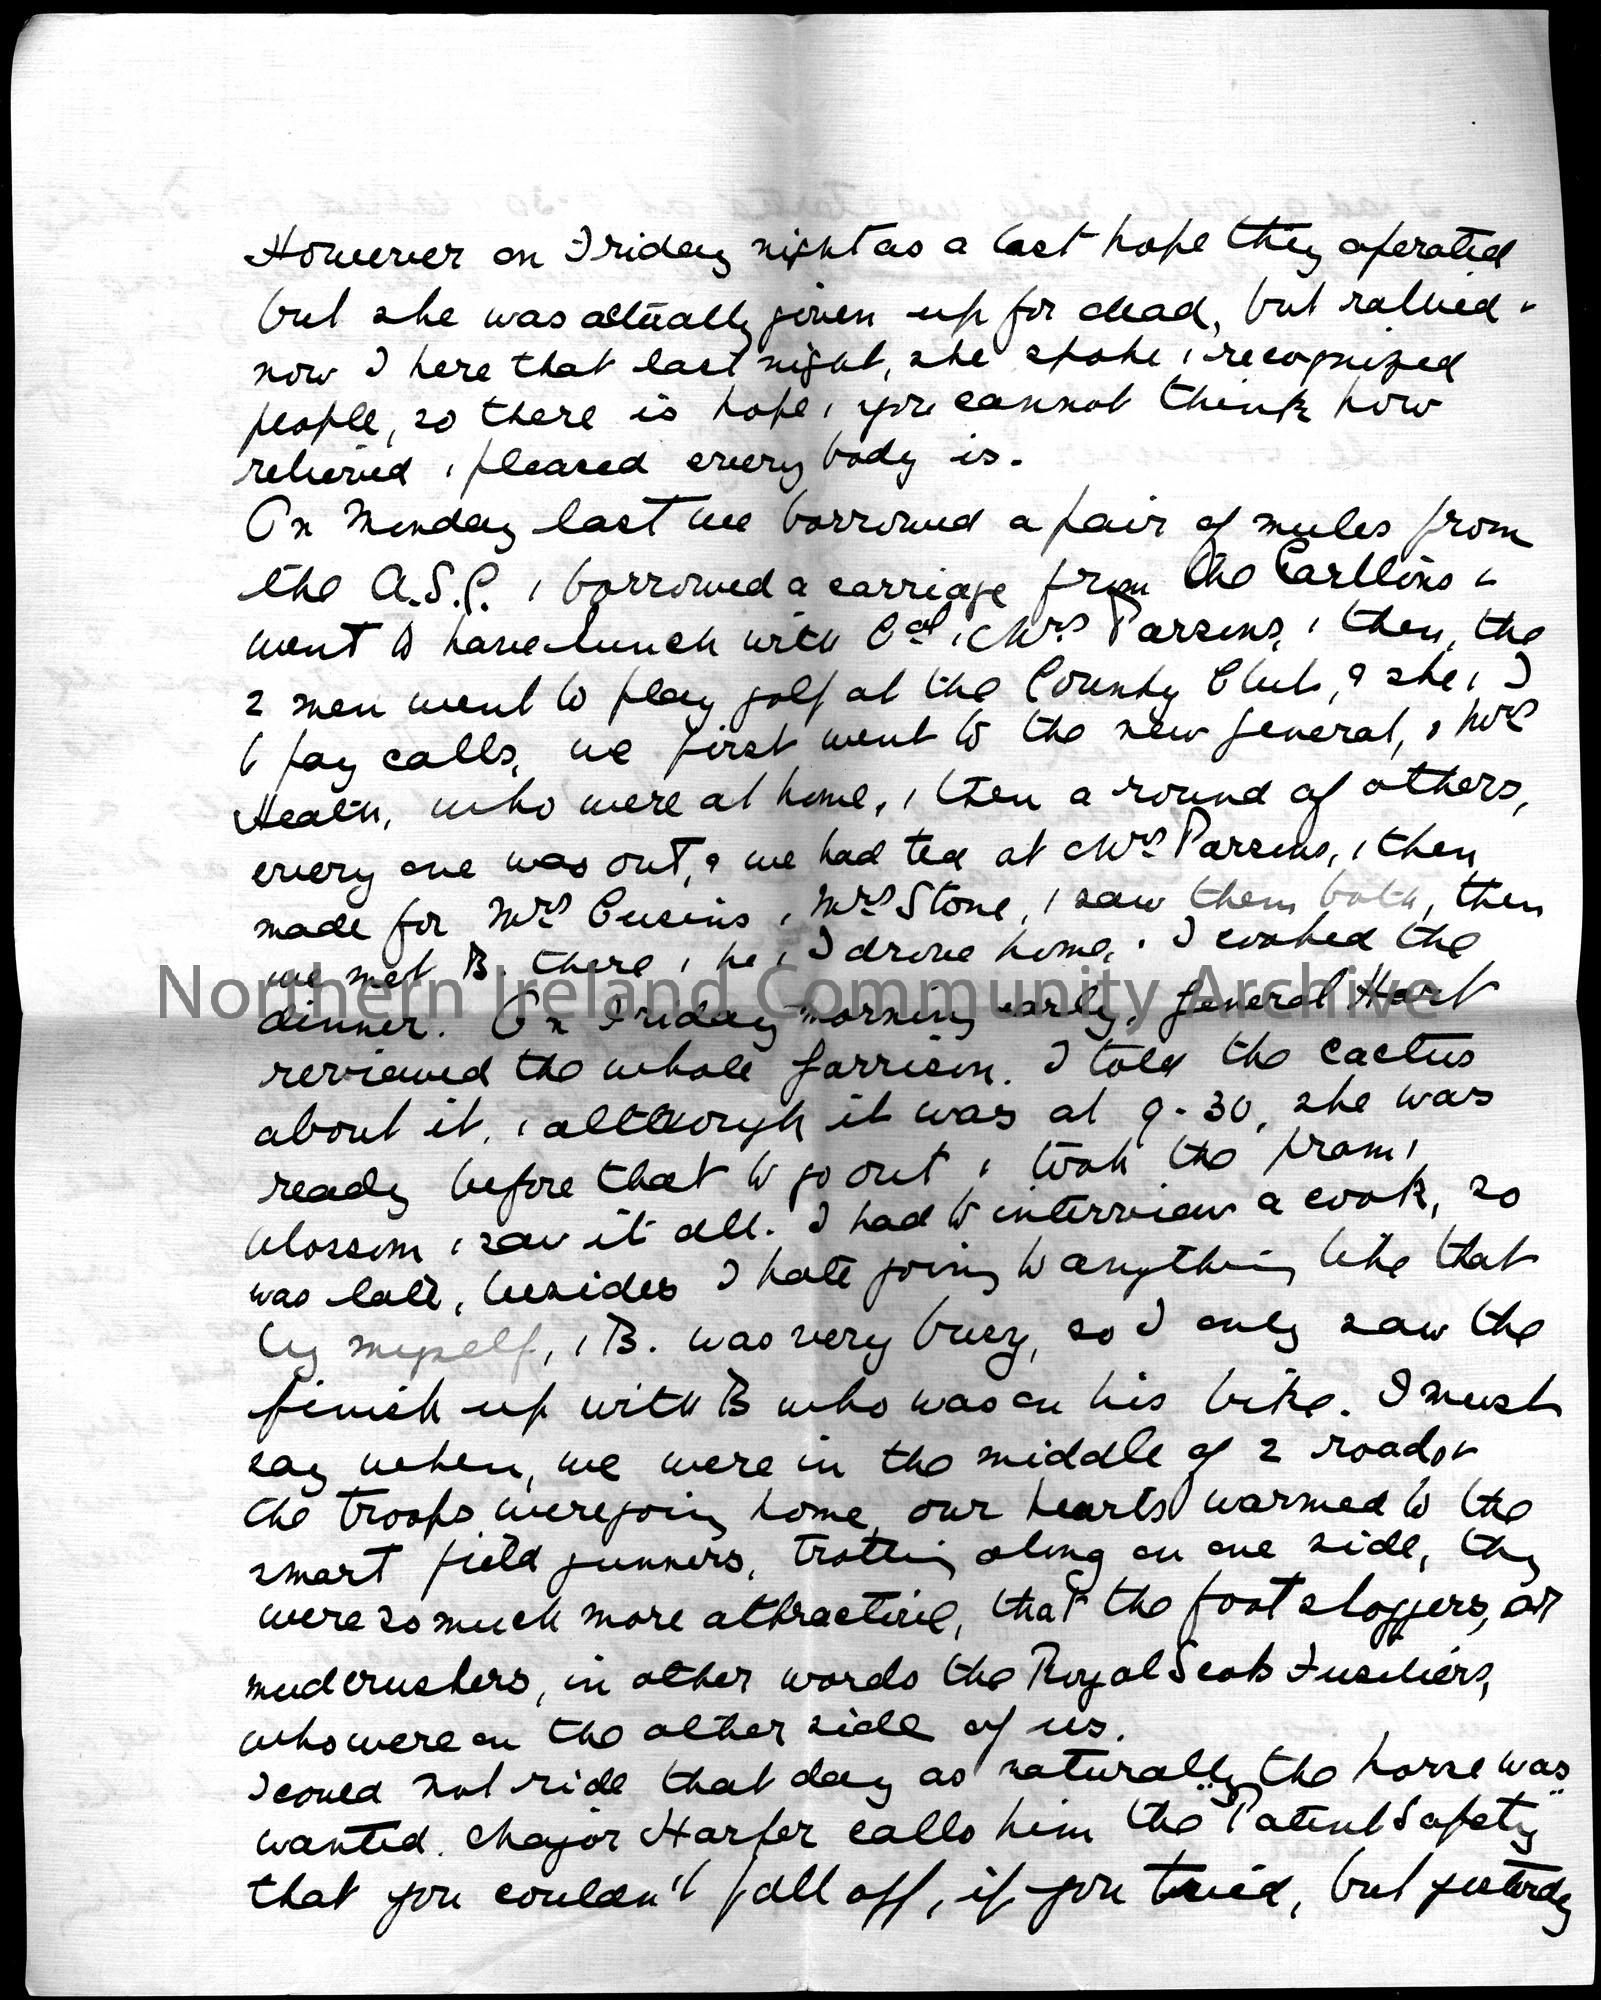 However on Friday night as a last hope they operated
but she was actually given up for dead, but rallied &
now I here that last night, she spoke & recognized
people, so there is hope, & you cannot think how
relieved & pleased every body is.
On Monday last we borrowed a pair of mules from
the A.S.C. & borrowed a carriage from the &
went to have lunch with Col & Mrs Parsons, & then, the
2 men went to play golf at the County Club, & she & I
to pay calls, we first went to the new general, & Mrs
Heath, who were at home, & then a round of others,
every one was out, & we had tea at Mrs Parsons, & then
made for Mrs Cusins & Mrs Stone, & saw them both, then
we met B. there & he & I drove home, & I cooked the
dinner. On Friday morning early, General Hart
reviewed the whole garrison. I told the cactus
about it, & although it was at 9-30, she was
ready before that to go out & took the pram &
blossom & saw it all. I had to interview a cook, so
was late, besides I hate going to anything like that
by myself, & B. was very busy, so I only saw the
finish up with B who was on his bike. I must
say when, we were in the middle of 2 roads &
the troops were going home, our hearts warmed to the
smart field gunners, trotting along on one side, they
were so much more attractive, that the foot sloggers, or
mudcrushers, in other words the Royal Scots Fusiliers,
who were on the other side of us.
I could not ride that day as naturally the horse was
wanted. Major Harper calls him the "Patent Safety"
that you couldn't fall off, if you tried, but yesterday
Northern Ireland Community Archive